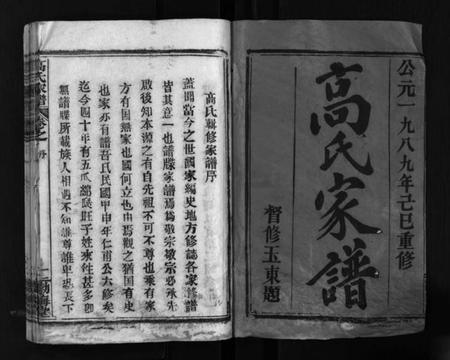 公元一九八九年己巳重修
高氏家譜
督修玉東題
高氏輯修家譜序
蓋聞當今之世國家編史地方修誌各家修譜
皆其意一也譜牒家譜焉為敬宗敬宗必承先
啟後知本源之有自先祖不可不尊也乗有家
方有国無家也國何立也由焉觀之猶国有史
也家亦有譜吾氏民國甲申年仁甫公六修矣
迄今四十年有五瓜綿良旺子姓來往甚多卽
無譜牒所載族人相遇不知誰尊誰卑恐長下
高氏家譜